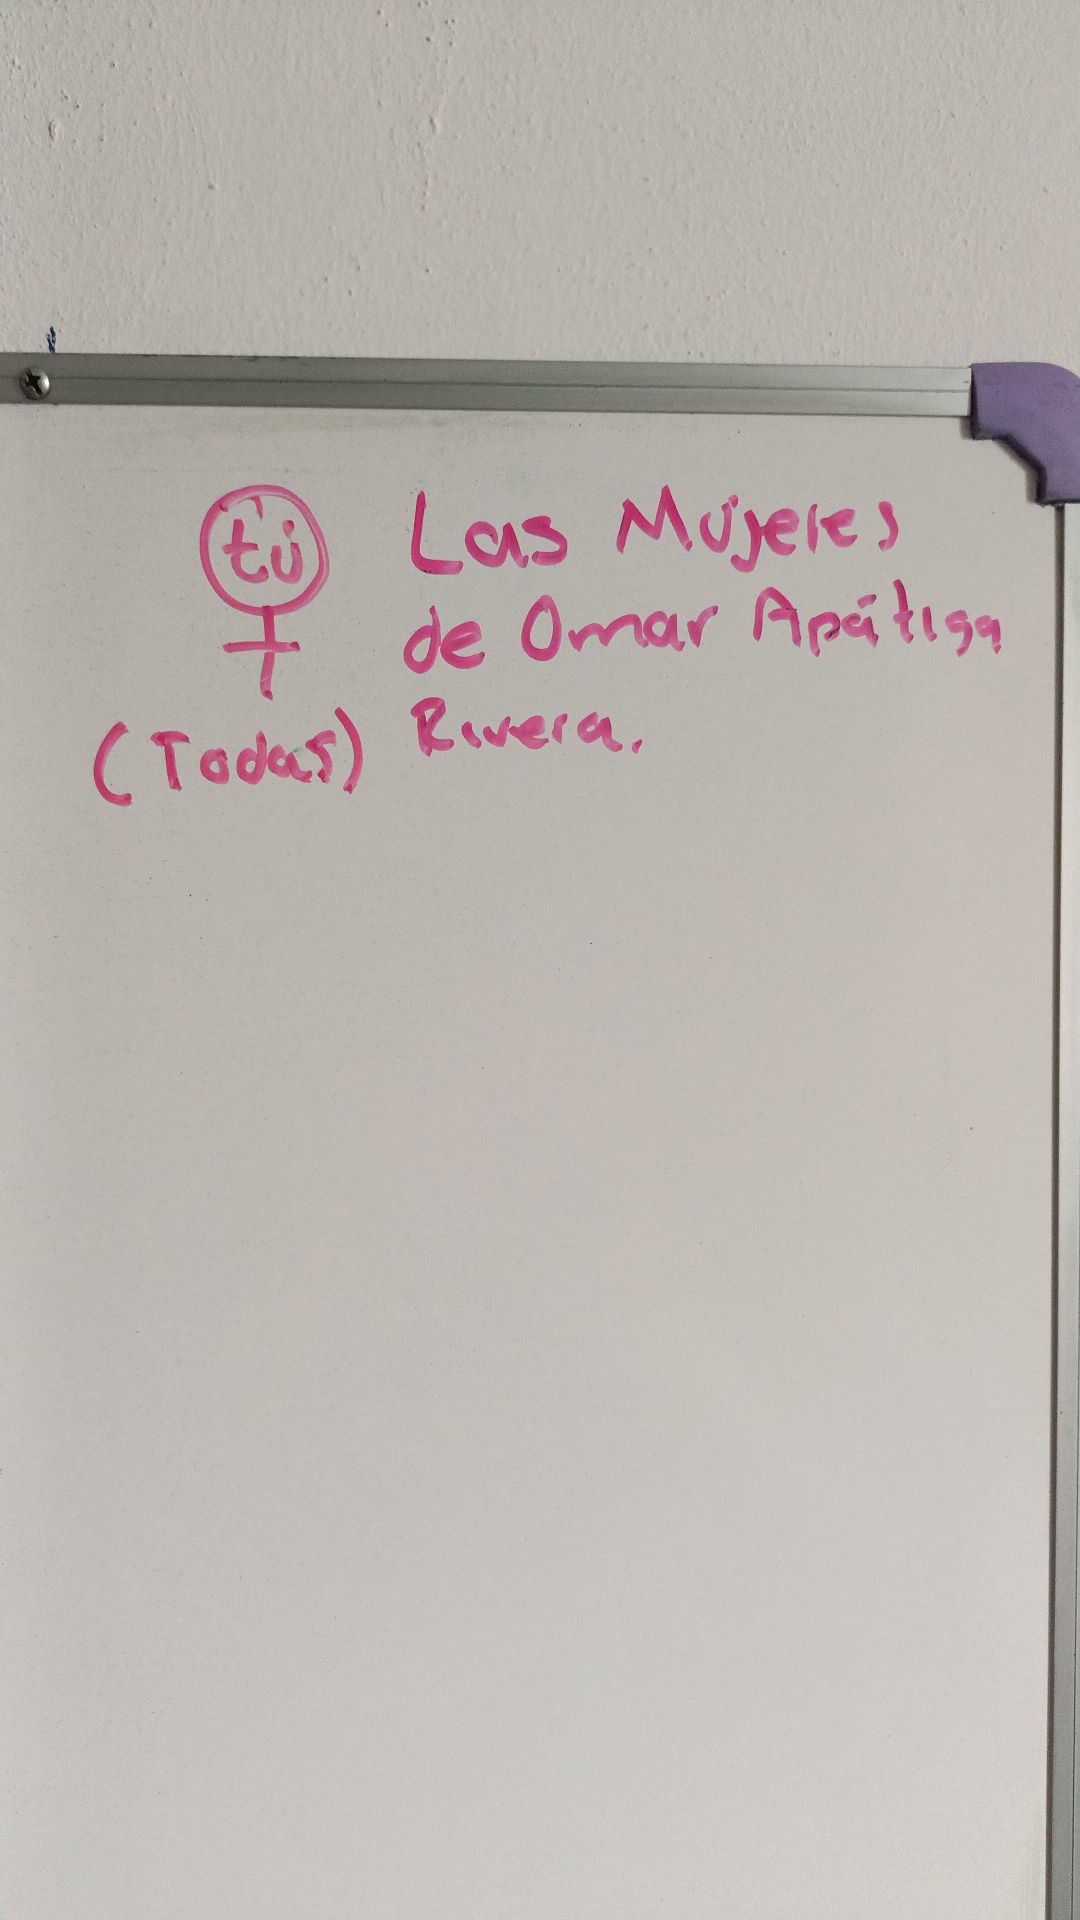 tú
(Todas)
Las Mujeres
de Omar Apátiga
Rivera.